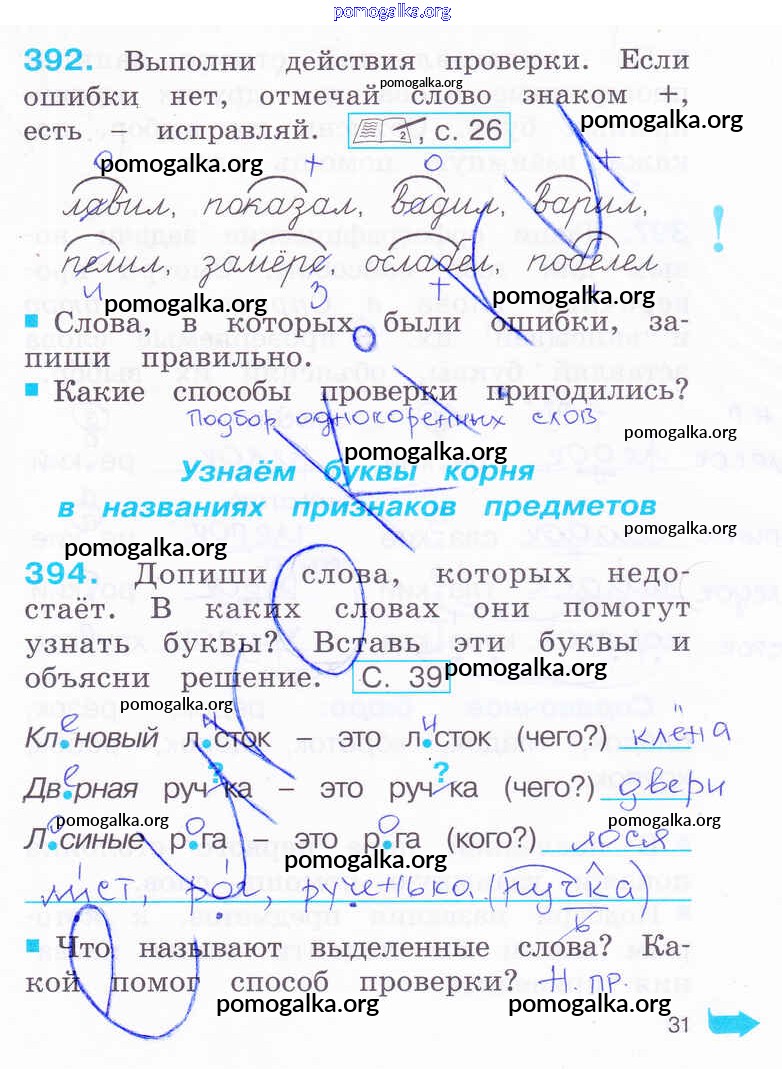 pomogalka.org
392. Выполни действия проверки. Если
pomogalka.org
ошибки нет, отмечай слово знаком +,
pomogalka.org
есть – исправляй. , с. 26
pomogalka.org
о + о +
лавил, показал, вадил, варил,
пелил, замёрс, ослабел, побелел.
и з + +
pomogalka.org pomogalka.org
Слова, в которых были ошибки, за-
пиши правильно.
Какие способы проверки пригодились?
Подбор однокоренных слов
pomogalka.org
Узнаём буквы корня
pomogalka.org
в названиях признаков предметов
pomogalka.org
pomogalka.org
394. Допиши слова, которых недо-
стаёт. В каких словах они помогут
узнать буквы? Вставь эти буквы и
pomogalka.org
объясни решение. С. 39
pomogalka.org
е и и
Кл.новый л.сток – это л.сток (чего?) клёна
е ? ?
Дв.рная руч ка – это руч ка (чего?) двери
pomogalka.org
о о о
Л.синые р.га – это р.га (кого?) лося
pomogalka.org
лист, рог, рученька (ручка)
ь
Что называют выделенные слова? Ка-
кой помог способ проверки? Н. пр.
pomogalka.org pomogalka.org
31